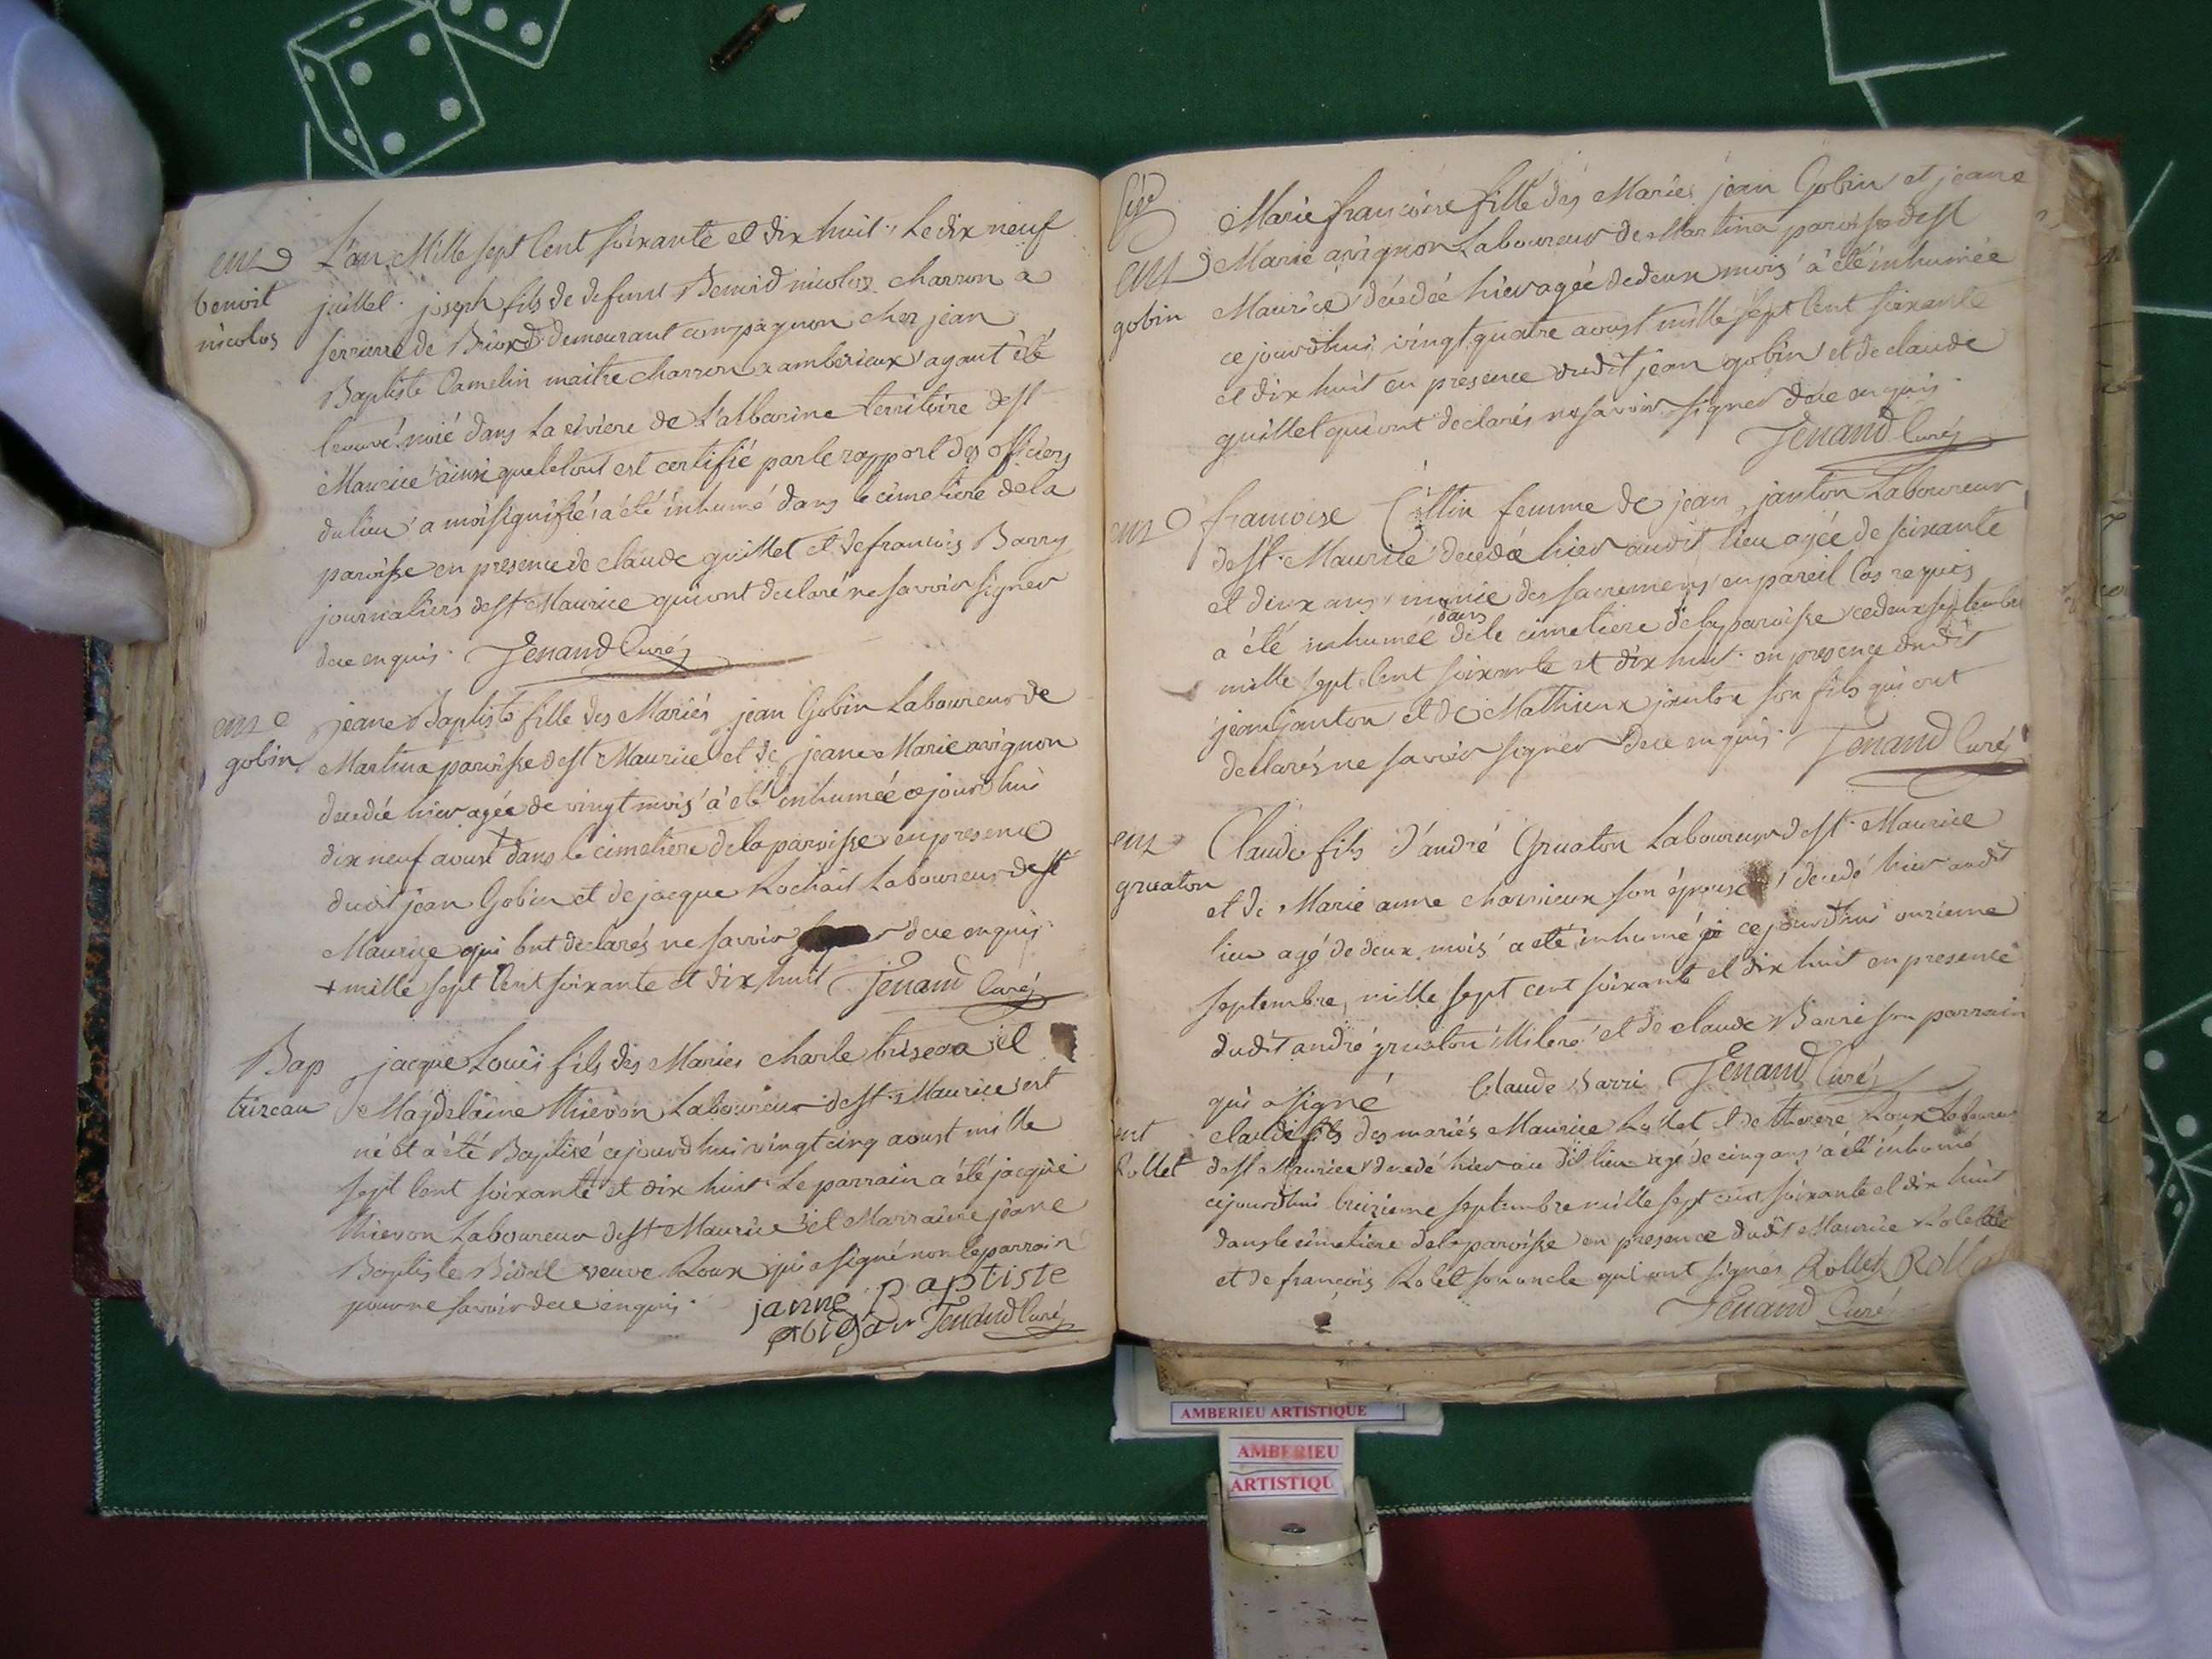 L'an Mille sept Cent soixante et dix huit, Le dix neuf
ent
juillet joseph fils de defunt Benoid nicolos charron a
benoit
nicolos
serriere de Briord demeurant compagnon chez jean
Baptiste Camelin maitre charron a amberieux ayant été
trouvé noié dans La riviere de L'albarine territoire de st
Maurice ainsi que le tout est certifié par le rapport des officiers
du lieu a moi signifié a été inhumé dans le cimetiere de la
paroisse en presence de claude guillet et de francois Barry
journaliers de st Maurice qui ont declaré ne savoir signer
de ce enquis. Jenand Curé
ent
gobin
jeane Baptiste fille des Mariés jean Gobin Laboureur de
Martina paroisse de st Maurice et de jeane Marie avignon
decedée hier agée de vingt mois a été inhumée ce jourdhui
dix neuf aoust + dans le cimetiere de la paroisse en presence
dudit jean Gobin et de jacque Rochait Laboureur de st
Maurice qui ont declarés ne savoir de ce enquis.
+ mille sept Cent soixante et dix huit Jenand Curé
Bap
trizeau
jacque Louis fils des Mariés charle et
Magdelaine thievon Laboureur de st Maurice est
né et a été Baptisé ce jourdhui vingt cinq aoust mille
sept Cent soixante et dix huit Le parrain a été jacque
thievon Laboureur de st Maurice et Marraine jeane
Baptiste Bidal veuve Roux qui a signé non le parrain
pour ne savoir de ce enquis.
janne Baptiste
Jenand Curé
Marie francoise fille des Mariés jean Gobin et jeane
ent
gobin
Marie avignon Laboureur de Martina paroisse de st
Maurice decedée hier agée de deux mois a été inhumée
ce jourdhui vingt quatre aoust mille sept Cent soixante
et dix huit en presence dudit jean gobin et de claude
guillet qui ont declarés ne savoir signer de ce enquis.
Jenand Curé
ent
francoise Collin femme de jean janton Laboureur
de st Maurice decedée hier audit lieu agée de soixante
et dix ans munie des sacremens en pareil Cas requis
dans
a été inhumée de le cimetiere de la paroisse ce deux septembre
mille sept Cent soixante et dix huit en presence dudit
jean janton et de Mathieux janton son fils qui ont
declarés ne savoir signer de ce enquis. Jenand Curé
ent
gruaton
Claude fils d'andré Gruaton Laboureur de st Maurice
et de Marie anne charvieux son épouse decedé hier audit
lieu agé de deux mois a été inhumé ce jourdhui onzieme
septembre mille sept cent soixante et dix huit en presence
dudit andré gruaton Milere et de claude Barri son parrain
qui a signé Claude Barri Jenand Curé
ent
Rollet
claude fils des mariés Maurice Rollet et de therese Roux Laboureur
de st Maurice decedé hier au dit lieu agé de cinq ans a été inhumé
ce jourdhui treizieme septembre mille sept cent soixante et dix huit
dans le cimetiere de la paroisse en presence dudit Maurice
et de francois Rolet son oncle qui ont signés Rollet
Jenand Curé
AMBERIEU ARTISTIQUE
AMBERIEU
ARTISTIQU